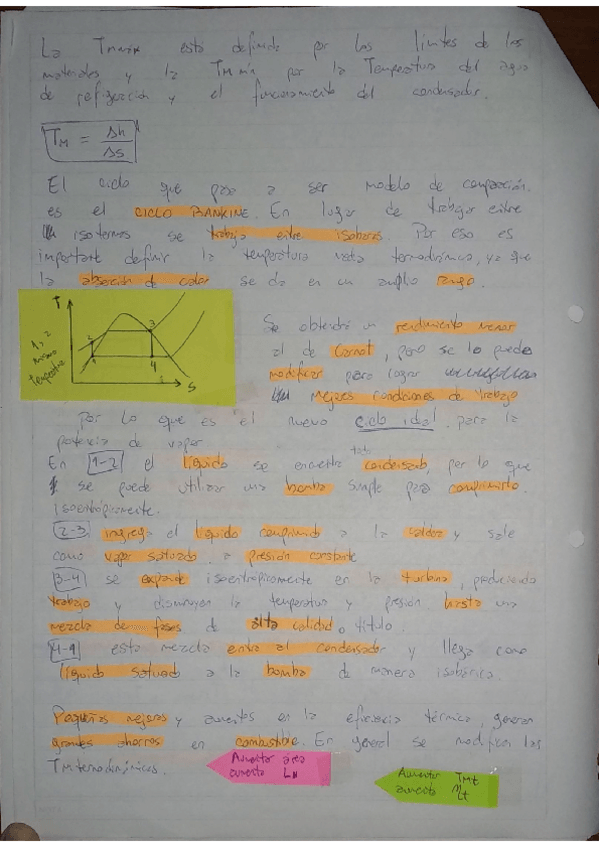 La Tmmáx esta definida por los limites de los
materiales y la TM mín por la Temperatura del agua
de refrigeración y el funcionamiento del condensador.
TM = Δh / Δs
El ciclo que pasa a ser modelo de comparación
es el CICLO RANKINE. En lugar de trabajar entre
isotermas se trabaja entre isobaras. Por eso es
importante definir la temperatura media termodinámica, ya que
la absorción de calor se da en un amplio rango.
T
1, 2
misma
temperatura
2
3
1
4
S
Se obtendrá un rendimiento menor
al de Carnot, pero se lo puede
modificar para lograr
Mejores condiciones de trabajo
Por lo que es el nuevo ciclo ideal para la
potencia de vapor
En 1-2 el líquido se encuentra todo condensado por lo que
se puede utilizar una bomba simple para comprimirlo
isoentrópicamente.
2-3 ingresa el líquido comprimido a la caldera y sale
como vapor saturado, a presión constante
3-4 se expande isoentrópicamente en la turbina, produciendo
trabajo y disminuyen la temperatura y presión hasta una
mezcla de fases de alta calidad o título.
4-1 esta mezcla entra al condensador y llega como
líquido saturado a la bomba de manera isobárica.
Pequeñas mejoras y aumentos en la eficiencia térmica, generan
grandes ahorros en combustible. En general se modifican las
TM termodinámicas.
Aumentar área
aumenta LN
Aumentar TMt
aumenta ηt